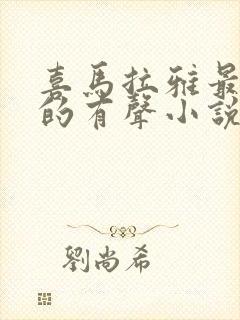 喜馬拉雅最
的有聲小說
劉尚希